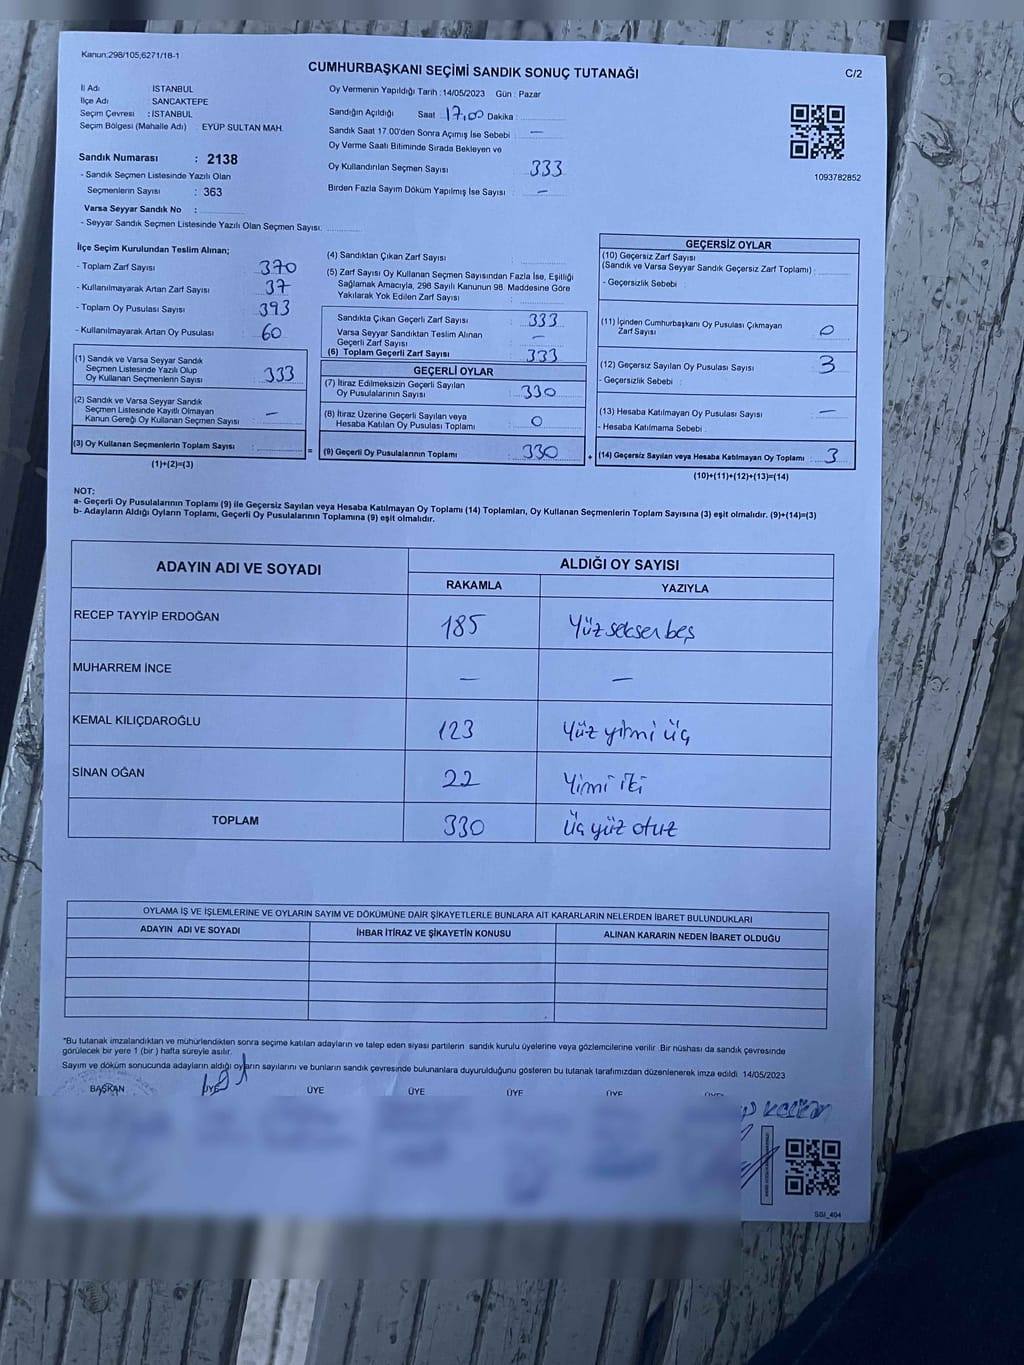 Kanun:298/105,6271/18-1
CUMHURBAŞKANI SEÇİMİ SANDIK SONUÇ TUTANAĞI
C/2
İl Adı : İSTANBUL
İlçe Adı : SANCAKTEPE
Seçim Çevresi : İSTANBUL
Seçim Bölgesi (Mahalle Adı) : EYÜP SULTAN MAH.
Sandık Numarası : 2138
- Sandık Seçmen Listesinde Yazılı Olan
Seçmenlerin Sayısı : 363
Varsa Seyyar Sandık No :
- Seyyar Sandık Seçmen Listesinde Yazılı Olan Seçmen Sayısı:
Oy Vermenin Yapıldığı Tarih :14/05/2023 Gün : Pazar
Sandığın Açıldığı Saat 17.00 Dakika :
Sandık Saat 17.00'den Sonra Açımış İse Sebebi : —
Oy Verme Saati Bitiminde Sırada Bekleyen ve
Oy Kullandırılan Seçmen Sayısı : 333
Birden Fazla Sayım Döküm Yapılmış İse Sayısı : —
1093782852
İlçe Seçim Kurulundan Teslim Alınan;
- Toplam Zarf Sayısı : 370
- Kullanılmayarak Artan Zarf Sayısı : 37
- Toplam Oy Pusulası Sayısı : 393
- Kullanılmayarak Artan Oy Pusulası : 60
(1) Sandık ve Varsa Seyyar Sandık
Seçmen Listesinde Yazılı Olup
Oy Kullanan Seçmenlerin Sayısı : 333
(2) Sandık ve Varsa Seyyar Sandık
Seçmen Listesinde Kayıtlı Olmayan
Kanun Gereği Oy Kullanan Seçmen Sayısı : —
(3) Oy Kullanan Seçmenlerin Toplam Sayısı :
(1)+(2)=(3)
(4) Sandıktan Çıkan Zarf Sayısı :
(5) Zarf Sayısı Oy Kullanan Seçmen Sayısından Fazla İse, Eşitliği
Sağlamak Amacıyla, 298 Sayılı Kanunun 98. Maddesine Göre
Yakılarak Yok Edilen Zarf Sayısı :
Sandıkta Çıkan Geçerli Zarf Sayısı : 333
Varsa Seyyar Sandıktan Teslim Alınan
Geçerli Zarf Sayısı : —
(6) Toplam Geçerli Zarf Sayısı : 333
GEÇERLİ OYLAR
(7) İtiraz Edilmeksizin Geçerli Sayılan
Oy Pusulalarının Sayısı : 330
(8) İtiraz Üzerine Geçerli Sayılan veya
Hesaba Katılan Oy Pusulası Toplamı : 0
= (9) Geçerli Oy Pusulalarının Toplamı : 330
GEÇERSİZ OYLAR
(10) Geçersiz Zarf Sayısı
(Sandık ve Varsa Seyyar Sandık Geçersiz Zarf Toplamı) :
- Geçersizlik Sebebi :
(11) İçinden Cumhurbaşkanı Oy Pusulası Çıkmayan
Zarf Sayısı : 0
(12) Geçersiz Sayılan Oy Pusulası Sayısı : 3
- Geçersizlik Sebebi :
(13) Hesaba Katılmayan Oy Pusulası Sayısı : —
- Hesaba Katılmama Sebebi :
+ (14) Geçersiz Sayılan veya Hesaba Katılmayan Oy Toplamı : 3
(10)+(11)+(12)+(13)=(14)
NOT:
a- Geçerli Oy Pusulalarının Toplamı (9) ile Geçersiz Sayılan veya Hesaba Katılmayan Oy Toplamı (14) Toplamları, Oy Kullanan Seçmenlerin Toplam Sayısına (3) eşit olmalıdır. (9)+(14)=(3)
b- Adayların Aldığı Oyların Toplamı, Geçerli Oy Pusulalarının Toplamına (9) eşit olmalıdır.
ADAYIN ADI VE SOYADI
ALDIĞI OY SAYISI
RAKAMLA YAZIYLA
RECEP TAYYİP ERDOĞAN 185 Yüz seksen beş
MUHARREM İNCE — —
KEMAL KILIÇDAROĞLU 123 Yüz yirmi üç
SİNAN OĞAN 22 Yirmi iki
TOPLAM 330 Üç yüz otuz
OYLAMA İŞ VE İŞLEMLERİNE VE OYLARIN SAYIM VE DÖKÜMÜNE DAİR ŞİKAYETLERLE BUNLARA AİT KARARLARIN NELERDEN İBARET BULUNDUKLARI
ADAYIN ADI VE SOYADI İHBAR İTİRAZ VE ŞİKAYETİN KONUSU ALINAN KARARIN NEDEN İBARET OLDUĞU
*Bu tutanak imzalandıktan ve mühürlendikten sonra seçime katılan adayların ve talep eden siyasi partilerin sandık kurulu üyelerine veya gözlemcilerine verilir. Bir nüshası da sandık çevresinde
görülecek bir yere 1 (bir) hafta süreyle asılır.
Sayım ve döküm sonucunda adayların aldığı oyların sayılarını ve bunların sandık çevresinde bulunanlara duyurulduğunu gösteren bu tutanak tarafımızdan düzenlenerek imza edildi. 14/05/2023
BAŞKAN ÜYE ÜYE ÜYE ÜYE ÜYE ÜYE
SSI_404